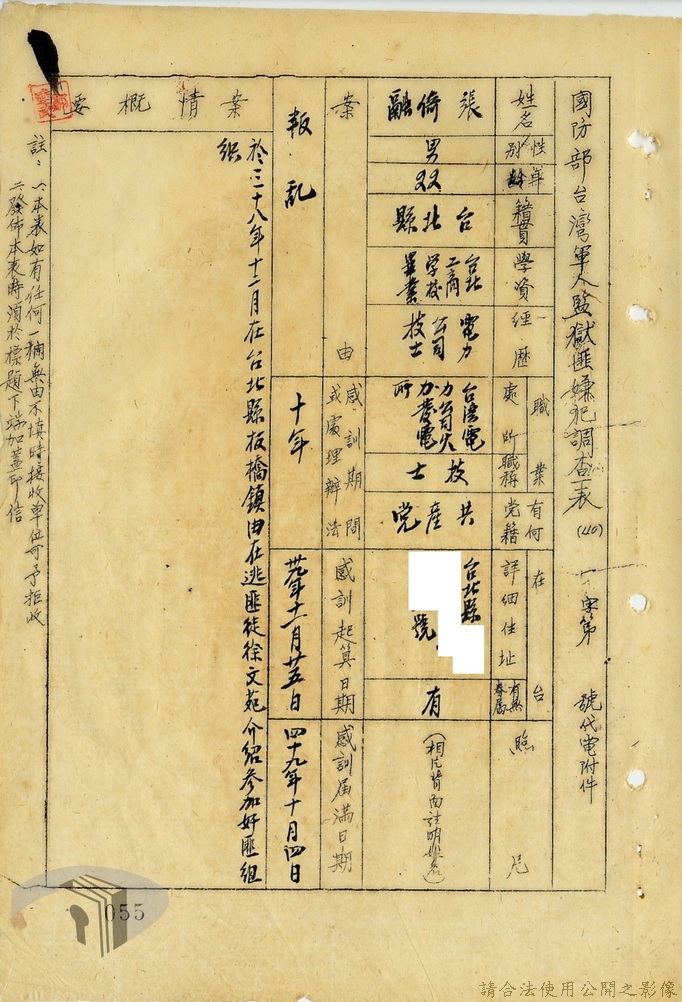 國防部台灣軍人監獄匪嫌犯調查表 (40) 字第 號代電附件
姓名
張倚融
性別
男
年齡
籍貫
台北縣
學資
台北工商學校畢業
經歷
電力公司技士
職業
處所
台湾電力公司火力發電所
職稱
技士
有何党籍
共產党
在台
詳細住址
台北縣
號
有無眷屬
有
照片
(相片背面註明姓名)
案由
叛亂
感訓期間或處理辦法
十年
感訓起算日期
卅九年十一月廿五日
感訓屆滿日期
四十九年十月四日
案情概要
於三十八年十二月在台北縣板橋鎮由在逃匪徒徐文苑介绍參加奸匪組
織
註：一、本表如有任何一欄無由不填時接收單位可予拒收
二、發佈本表時須於標題下端加蓋印信
055
請合法使用公開之影像